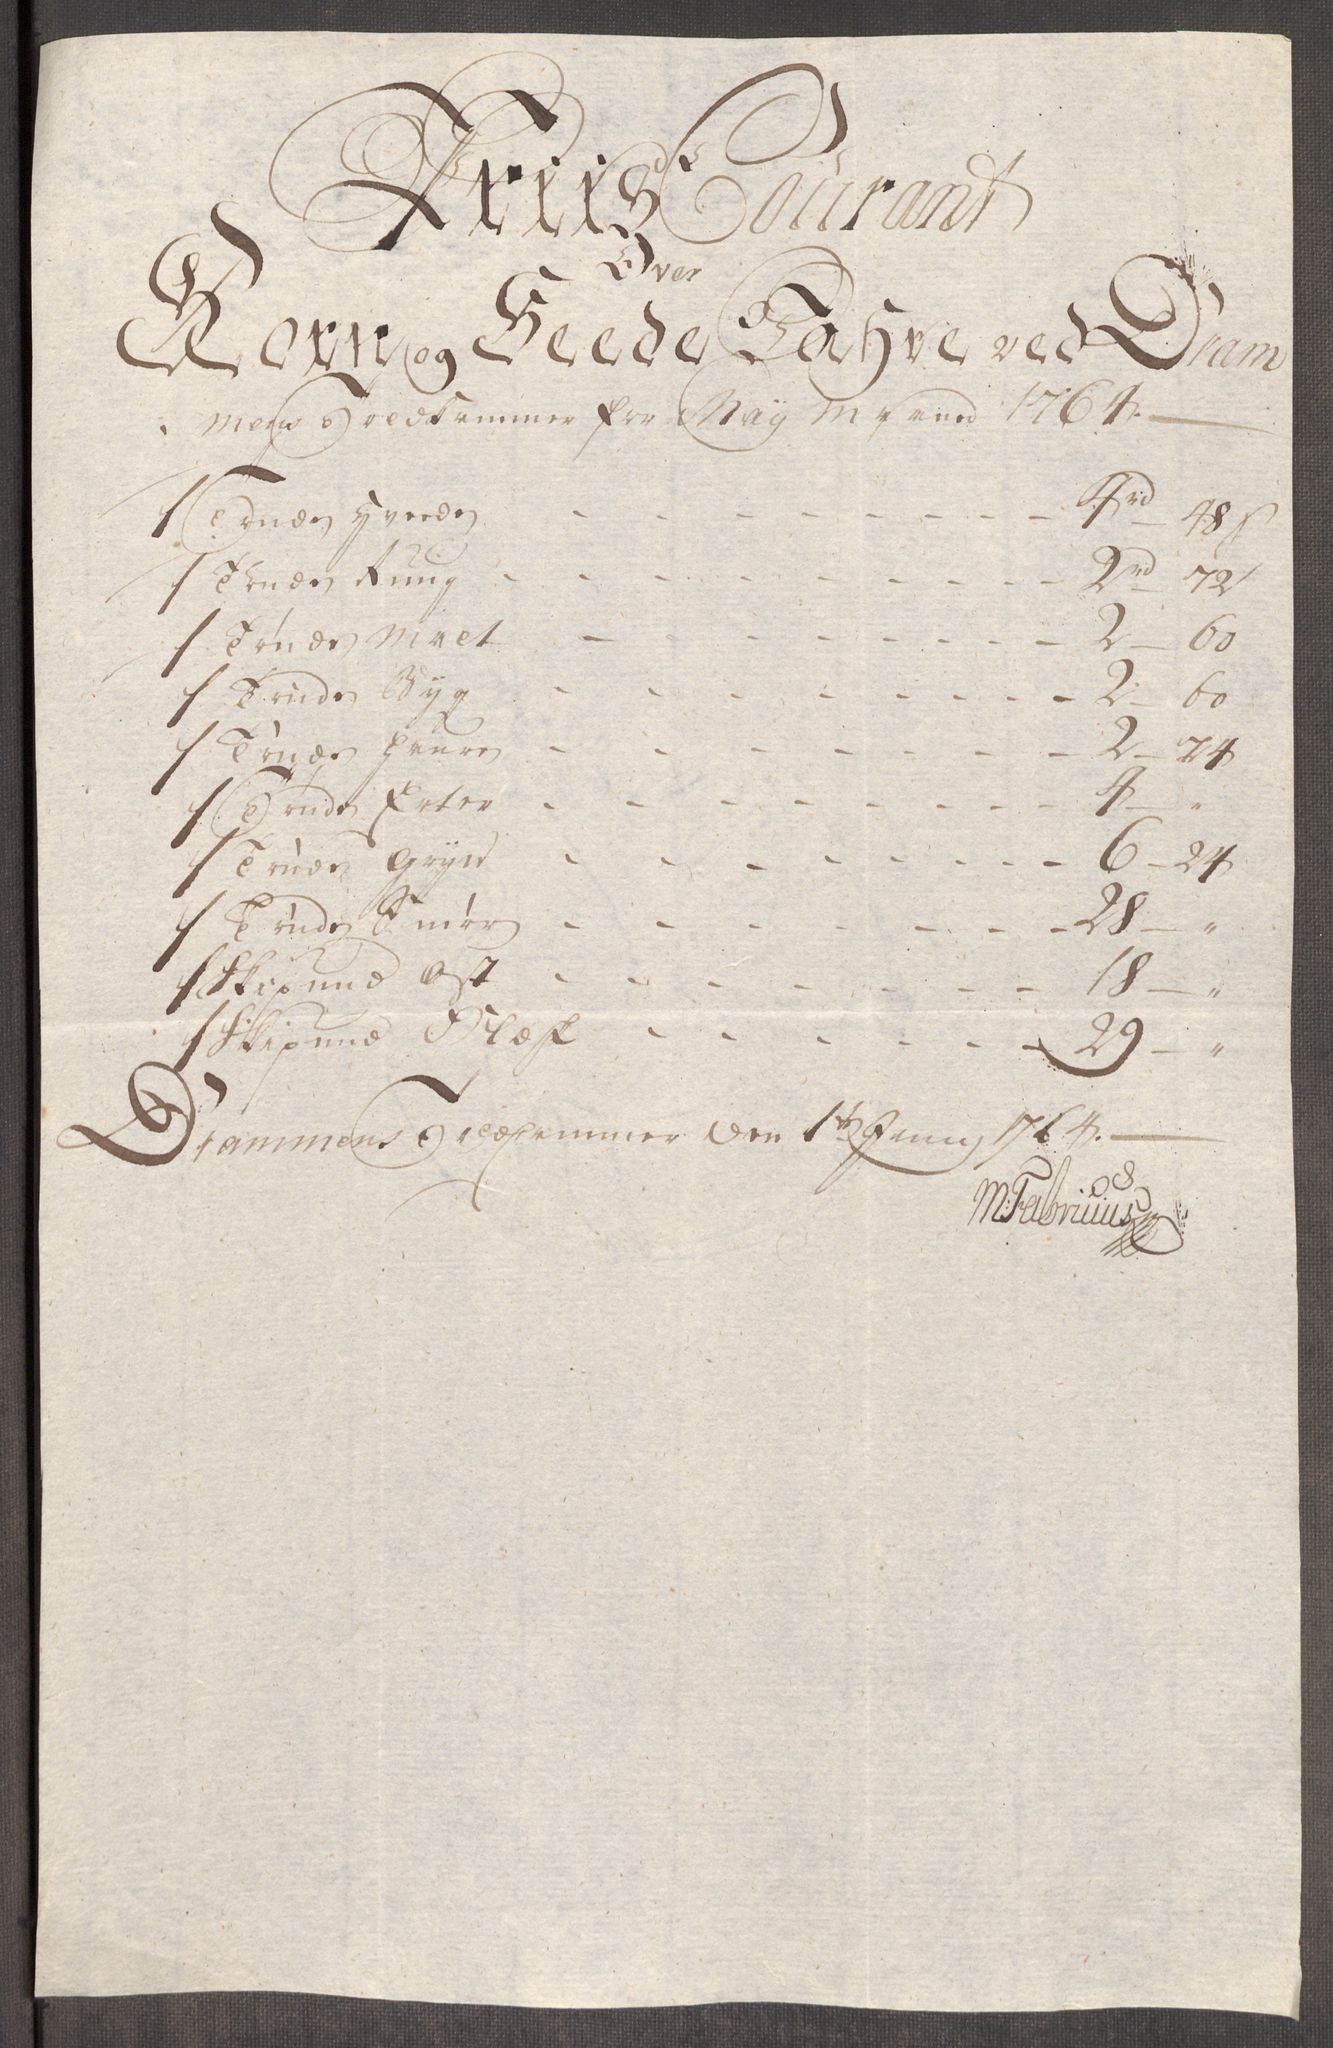 Priis Courant
Over
Korn og Feede Vahre ved Dram
mens Toldkammer for Maij Maaned 1764.
1 Tønde Hveede 4 rd 48 s
1 Tønde Rug 2 rd 72
1 Tønde Malt 2 60
1 Tønde Byg 2 60
1 Tønde Havre 2 24
1 Tønde Erter 4 "
1 Tønde Gryn 6 24
1 Tønde Smør 28 "
1 Skipund Ost 18 "
1 Skipund Flesk 29 "
Drammens Toldkammer den 1te Junij 1764.
M: Fabricius